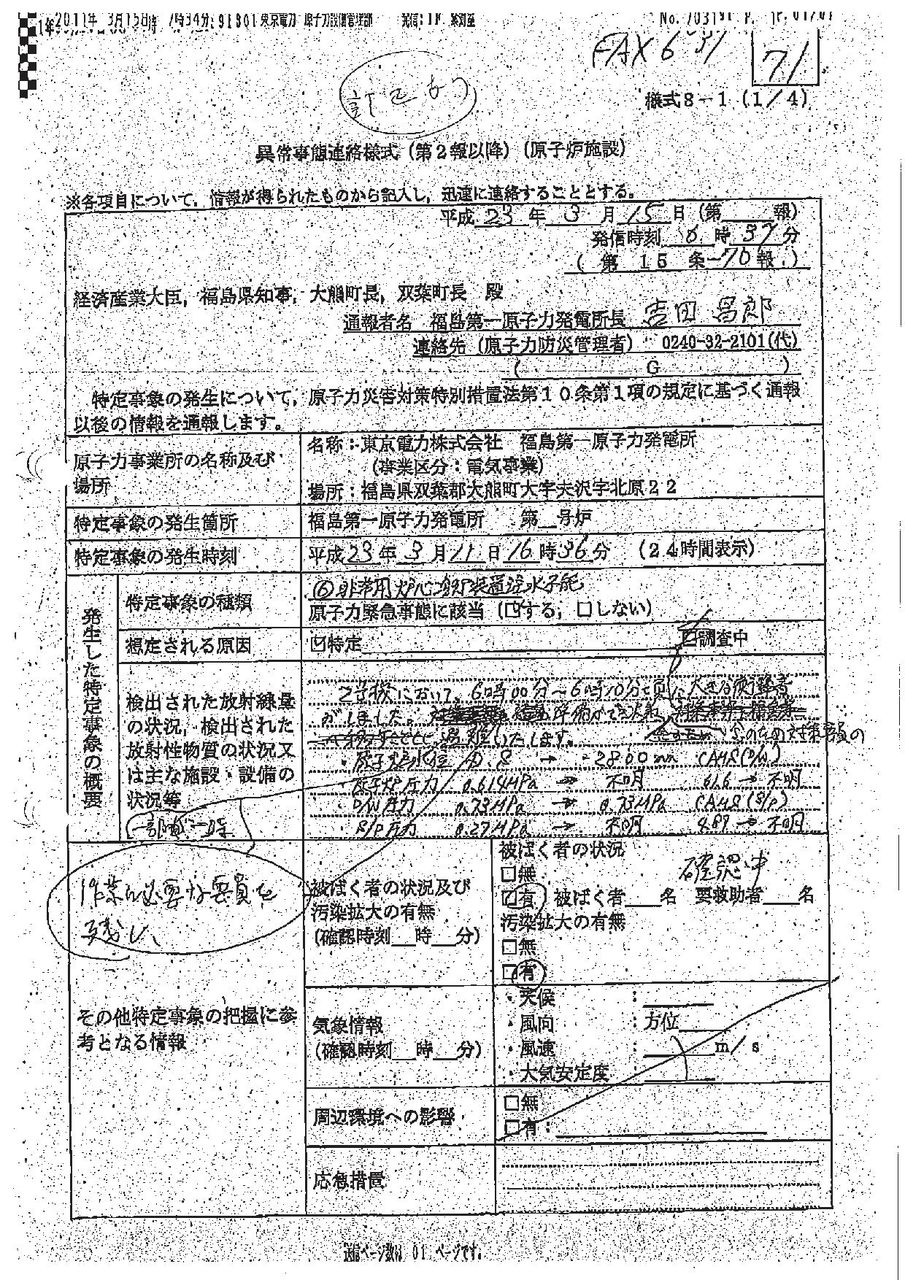 2011年 3月15日 7時34分
東京電力 原子力設備管理部
FAX 6
71
様式8-1 (1/4)
訂正あり
異常事態連絡様式(第2報以降)(原子炉施設)
※各項目について,情報が得られたものから記入し,迅速に連絡することとする。
平成 23 年 3 月 15 日 (第 報)
発信時刻 6 時 37 分
(第 15 条-70報,)
経済産業大臣,福島県知事,大熊町長,双葉町長 殿
通報者名 福島第一原子力発電所長 吉田 昌郎
連絡先(原子力防災管理者) 0240-32-2101(代)
( G )
特定事象の発生について,原子力災害対策特別措置法第10条第1項の規定に基づく通報
以後の情報を通報します。
原子力事業所の名称及び
場所
名称:東京電力株式会社 福島第一原子力発電所
(事業区分:電気事業)
場所:福島県双葉郡大熊町大字夫沢字北原22
特定事象の発生箇所
福島第一原子力発電所 第 号炉
特定事象の発生時刻
平成23年 3月 11日 16時36分 (24時間表示)
発生した特定事象の概要
特定事象の種類
⑥非常用炉心 装置注水不能
原子力緊急事態に該当 (☑する,□しない)
想定される原因
☑特定
☑調査中
検出された放射線量
の状況,検出された
放射性物質の状況又
は主な施設・設備の
状況等
2号機において、6時00分~6時10分頃に大きな衝撃音
がしました。 準備ができ次第、
退避いたします。 対策本部の
・原子炉水位 → -2800mm CAMS(D/W)
・原子炉圧力 0.614MPa → 不明 61.6 → 不明
D/W圧力 0.73MPa → 0.73MPa CAMS(S/P)
S/P圧力 0.27MPa → 不明 4.87 → 不明
一部が一時
作業に必要な要員を
残し、
その他特定事象の把握に参
考となる情報
被ばく者の状況及び
汚染拡大の有無
(確認時刻 時 分)
被ばく者の状況
確認中
□無
□有 被ばく者 名 要救助者 名
汚染拡大の有無
□無
□有
気象情報
(確認時刻 時 分)
・天候 :
・風向 :方位
・風速 : m/s
・大気安定度 :
周辺環境への影響
□無
□有:
応急措置
送信ページ数は 01 ページです。